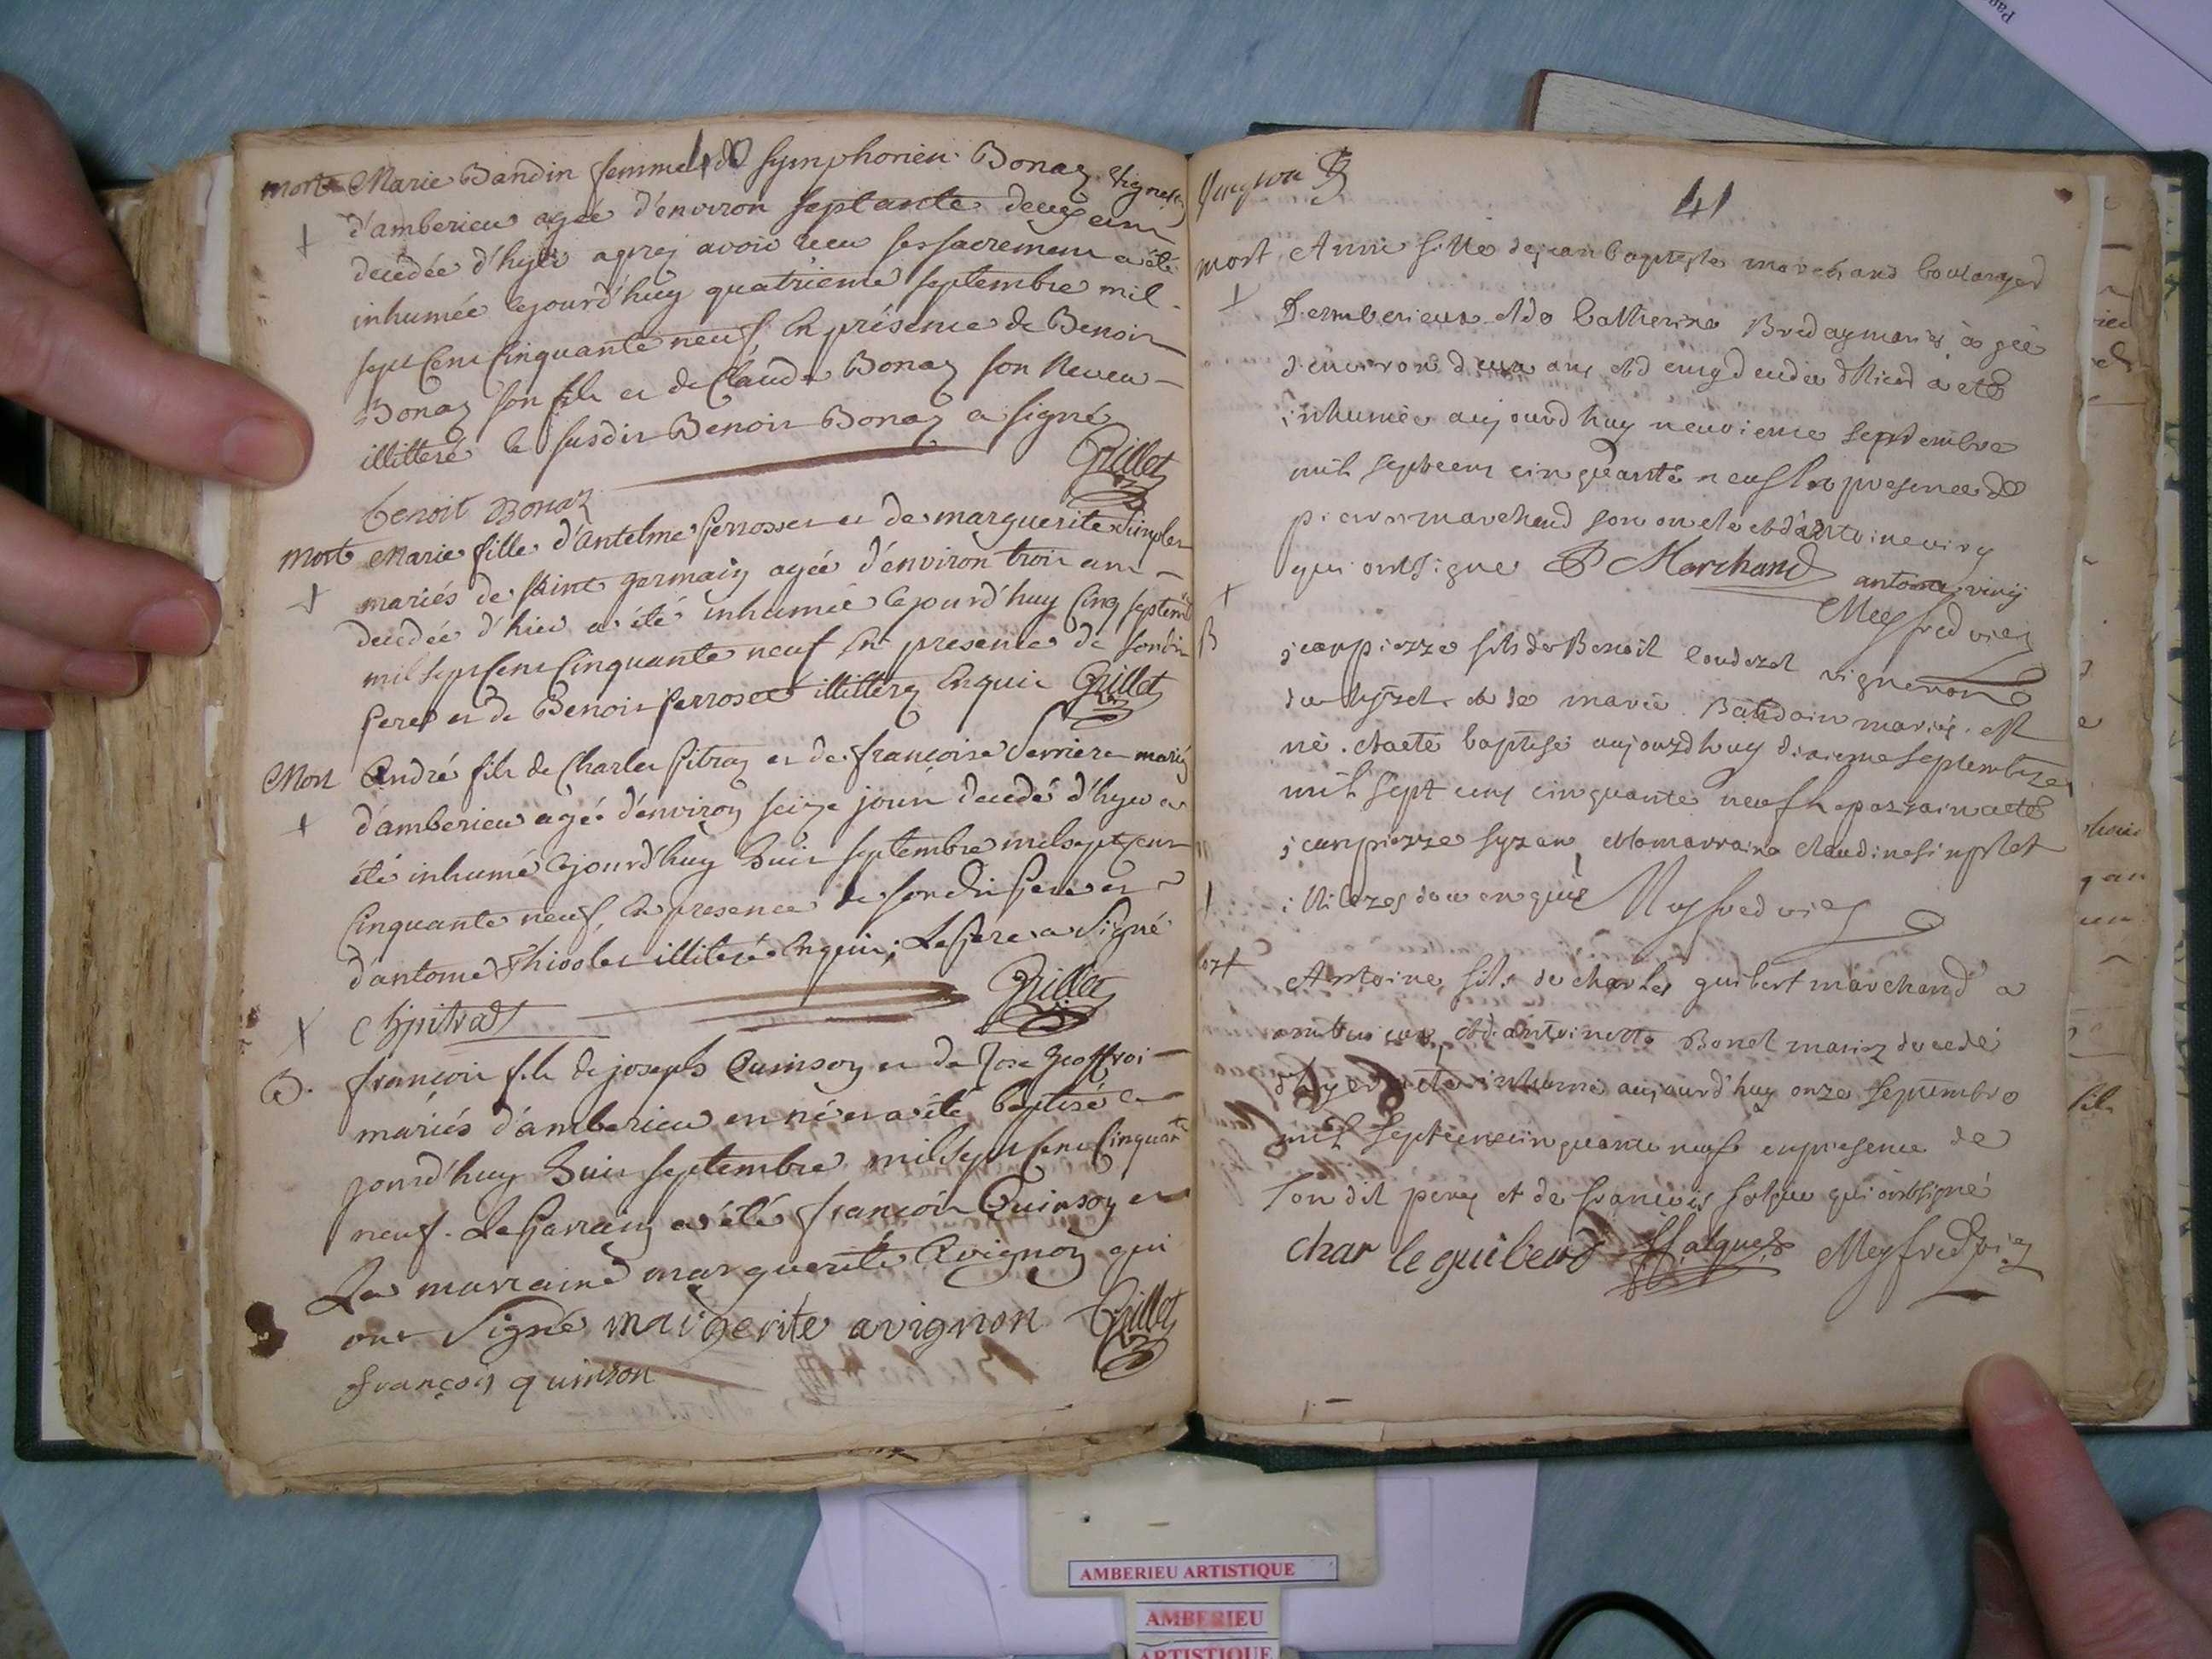 morte Marie Bandin femme de symphorien Bonaz vigneron
d'amberieu agée d'environ septante deux ans
decedée d'hyer aprez avoir reçu ses sacremens a été
inhumée cejourd'huy quatrieme septembre mil
sept cent cinquante neuf, en présence de Benoit
Bonaz son fils et de Claude Bonaz son Neveu
illitteré le susdit Benoit Bonaz a signé
Grillet
benoit Bonaz
Morte Marie fille d'Antelme ferrosset et de marguerite
mariés de saint germain agée d'environ trois ans
decedée d'hier a été inhumée cejourd'huy cinq septembre
mil sept cent cinquante neuf en presence de sondit
pere et de Benoit ferrosset illitterez enquis Grillet
Mort André fils de Charles pitraz et de francoise mariés
d'amberieu agé d'environ seize jours decedé d'hyer a
été inhumé cejourd'huy huit septembre mil sept cent
cinquante neuf, en presence de sondit pere et
d'antoine illiteré enquis; Le pere a signé
Grillet
B. francois fils de joseph Quinson et de Jose Geoffroi
mariés d'amberieu est né et a été baptisé ce
jourd'huy huit septembre mil sept cent cinquante
neuf. Le parrain a été francois Quinson et
La marraine marguerite Avignon qui
ont signé margerite avignon Grillet
françois quinson
41
mort Anne fille de jean baptiste marchand boulanger
d'emberieux et de Catherine mariés agée
d'environ deux ans et demy decedee d'hier a eté
inhumée aujourdhuy neuvieme septembre
mil sept cens cinquante neuf en presence de
pierre marchand son oncle et d'antoine viry
qui ont signe P Marchand antoine viry
Meyfred
B jean pierre fils de Benoit vigneron
du et de marie Baudoin mariés est
né et a eté baptisé aujourdhuy dixieme septembre
mil sept cens cinquante neuf le parrain a eté
jean pierre et la marraine claudine
illiterez de ce enquis Meyfred
mort Antoine fils de charles guibert marchand a
amberieux et d'antoinette Bonet mariez decedé
d'hyer a eté inhumé aujourd'huy onze septembre
mil sept cent cinquante neuf en presence de
son dit pere et de francois falque qui ont signé
char le guiberd falque Meyfred
AMBERIEU ARTISTIQUE
AMBERIEU
ARTISTIQUE